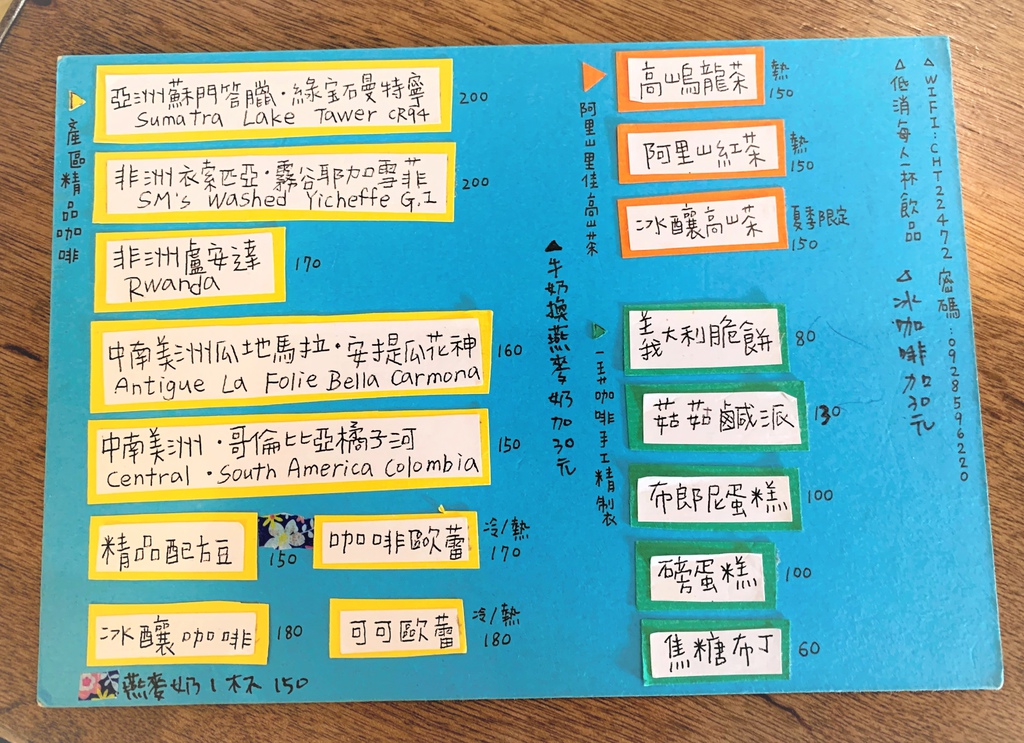 產區精品咖啡
亞洲蘇門答臘·綠宝石曼特寧 200
Sumatra Lake Tawer CR94
非洲衣索匹亞·霧谷耶加雪菲 200
SM's Washed Yicheffe G.1
非洲盧安達 170
Rwanda
中南美洲瓜地馬拉·安提瓜花神 160
Antigue La Folie Bella Carmona
中南美洲·哥倫比亞橘子河 150
Central · South America Colombia
精品配方豆 150
咖啡歐蕾 冷/熱 170
冰釀咖啡 180
可可歐蕾 冷/熱 180
燕麥奶1杯 150
牛奶換燕麥奶加30元
阿里山里佳高山茶
高山烏龍茶 熱 150
阿里山紅茶 熱 150
冰釀高山茶 夏季限定 150
咖啡手工精製
義大利脆餅 80
菇菇鹹派 130
布郎尼蛋糕 100
磅蛋糕 100
焦糖布丁 60
低消每人一杯飲品
冰咖啡加30元
WIFI:CHT22472 密碼:0928596220